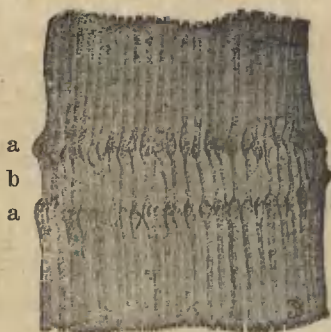 a
b
a